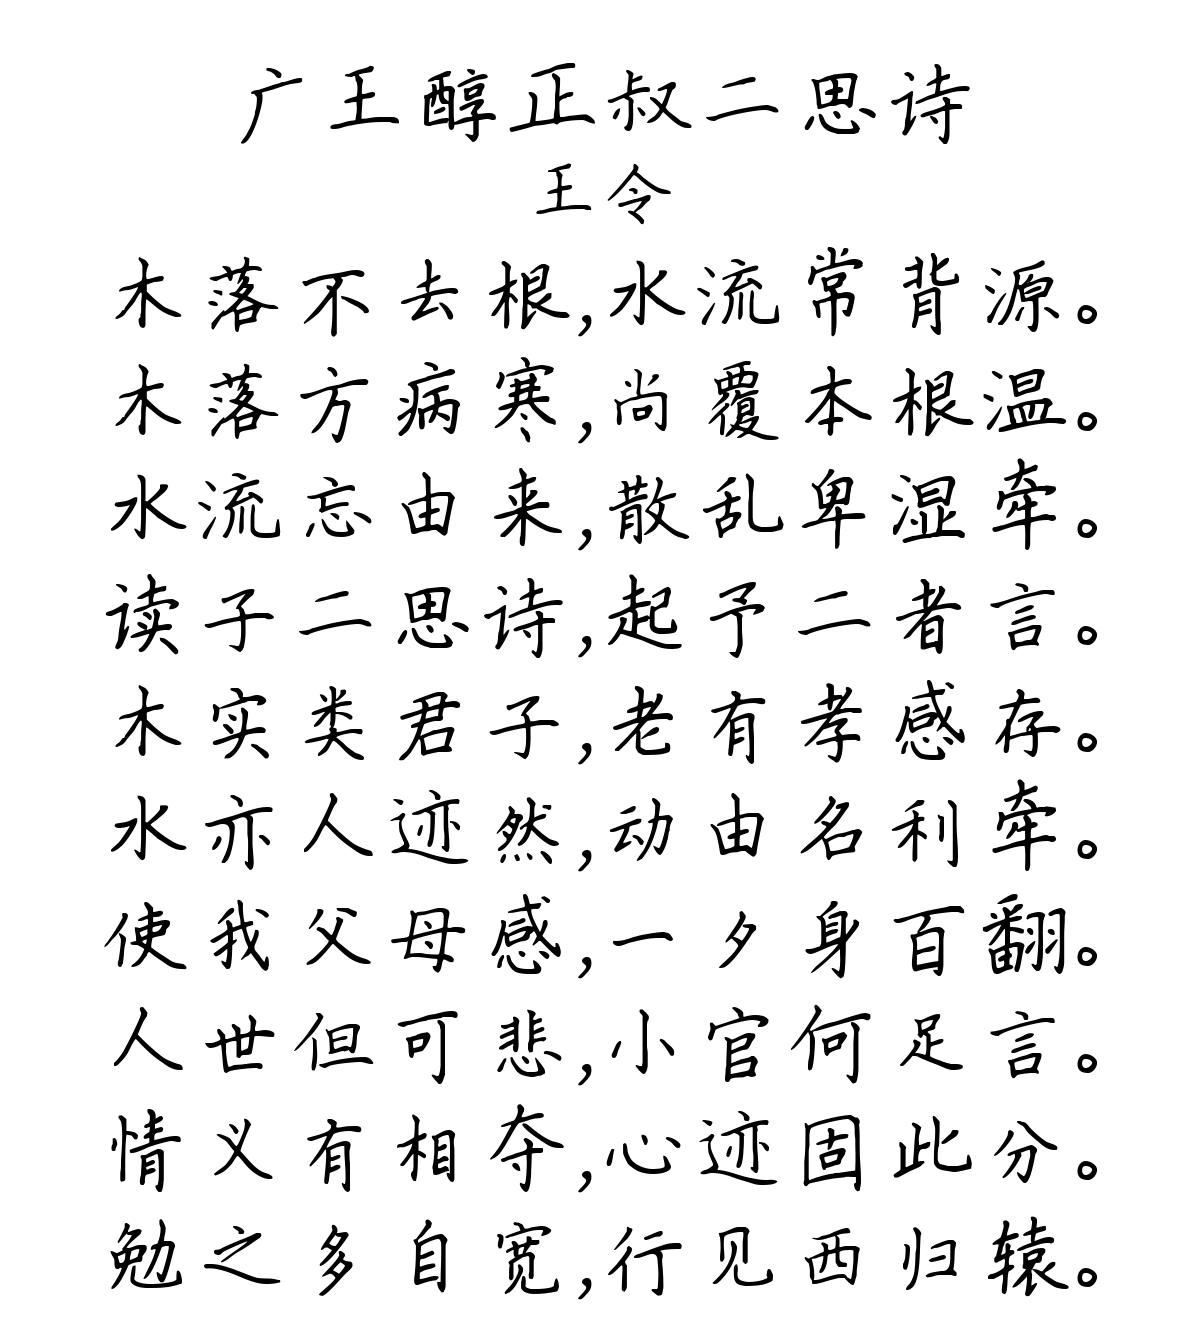 广王醇正叔二思诗
王令
木落不去根,水流常背源。
木落方病寒,尚覆本根温。
水流忘由来,散乱卑湿牵。
读子二思诗,起予二者言。
木实类君子,老有孝感存。
水亦人迹然,动由名利牵。
使我父母感,一夕身百翻。
人世但可悲,小官何足言。
情义有相夺,心迹固此分。
勉之多自宽,行见西归辕。